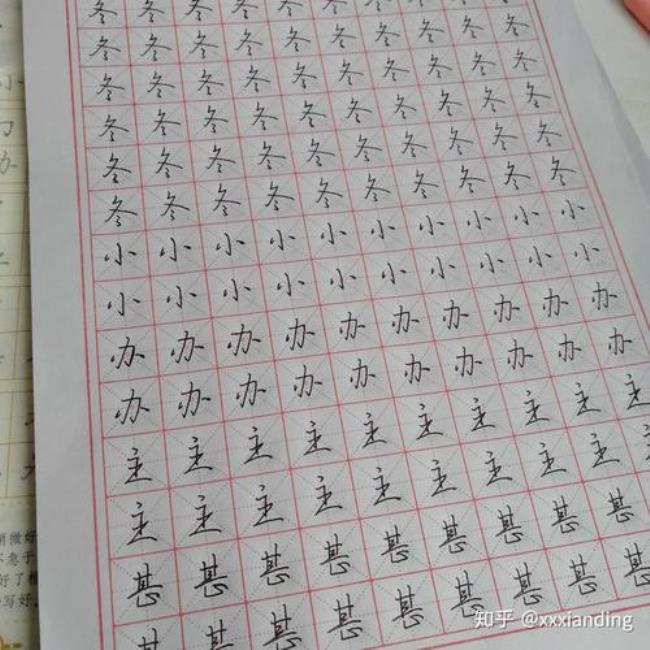 冬冬冬冬冬冬冬冬冬冬
冬冬冬冬冬冬冬冬冬冬
冬冬冬冬冬冬冬冬冬冬
冬冬冬冬冬冬冬冬冬冬
冬冬冬冬冬冬冬冬冬冬
冬冬冬冬冬冬冬冬冬冬
小小小小小小小小小小
小小小小小小小小小小
办办办办办办办办办办
办办办办办办办办办办
主主主主主主主主主主
主主主主主主主主主主
甚甚甚甚甚甚甚甚甚
甚甚甚甚甚甚甚甚甚
办
做好
不急于
好了
写好
知乎 @xxxianding